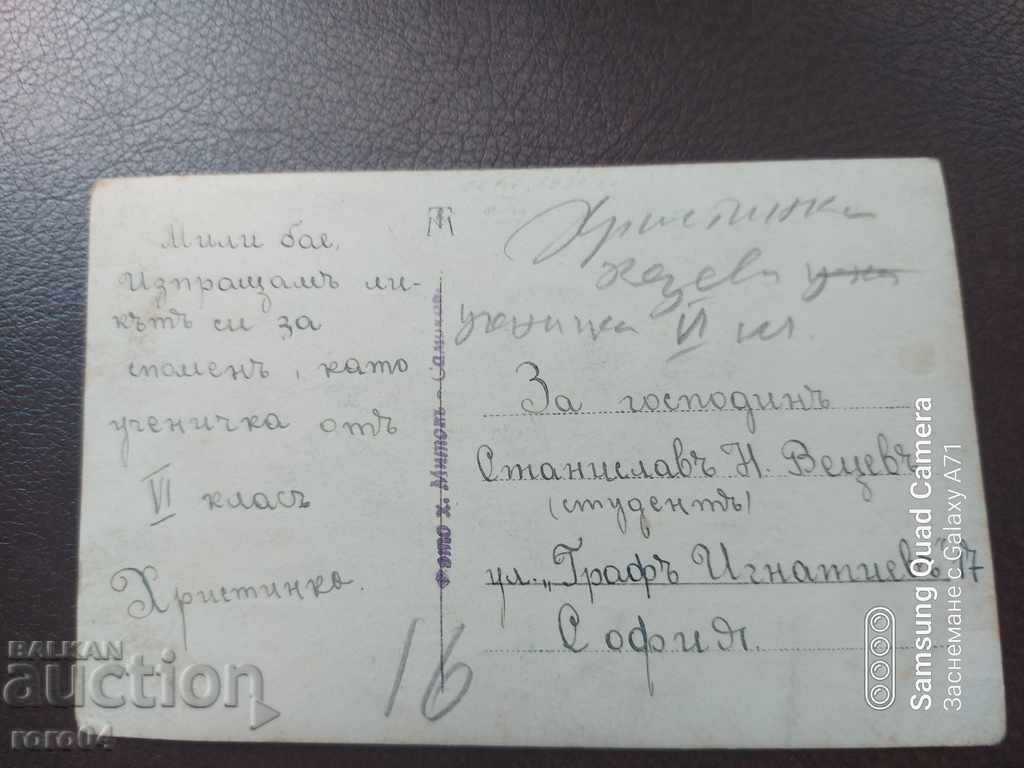 Мили бае,
Изпращамъ ли-
кътъ си за
споменъ, като
ученичка отъ
VI класъ
Христинка.
16
Фото х. Митовъ - Самоков
Христинка
ученичка VI кл.
За господинъ
Станиславъ Н. Вецевъ
(студентъ)
ул. „Графъ Игнатиевъ" 7
София.
BALKAN
auction
roro04
Samsung Quad Camera
Заснемане с Galaxy A71